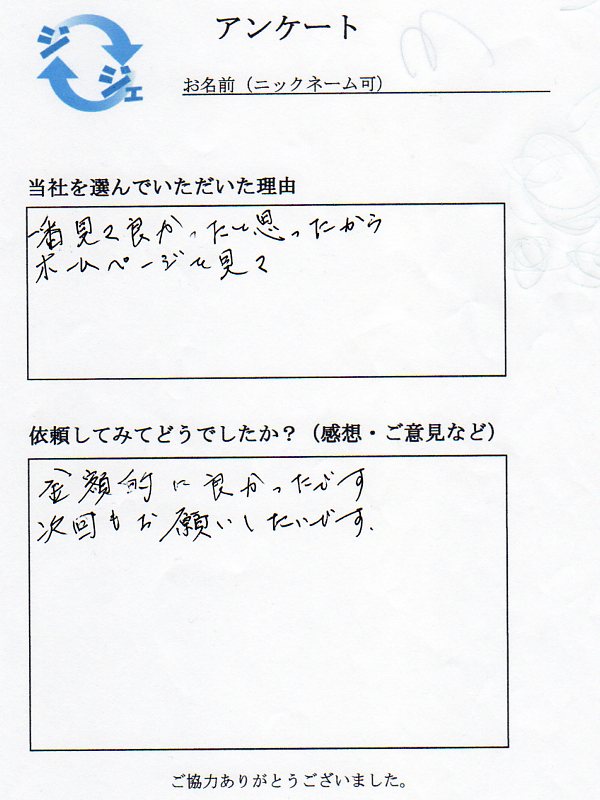 ジジェ
アンケート
お名前（ニックネーム可）
当社を選んでいただいた理由
一番見て良かったと思ったから
ホームページを見て
依頼してみてどうでしたか？（感想・ご意見など）
金額的に良かったです
次回もお願いしたいです.
ご協力ありがとうございました。